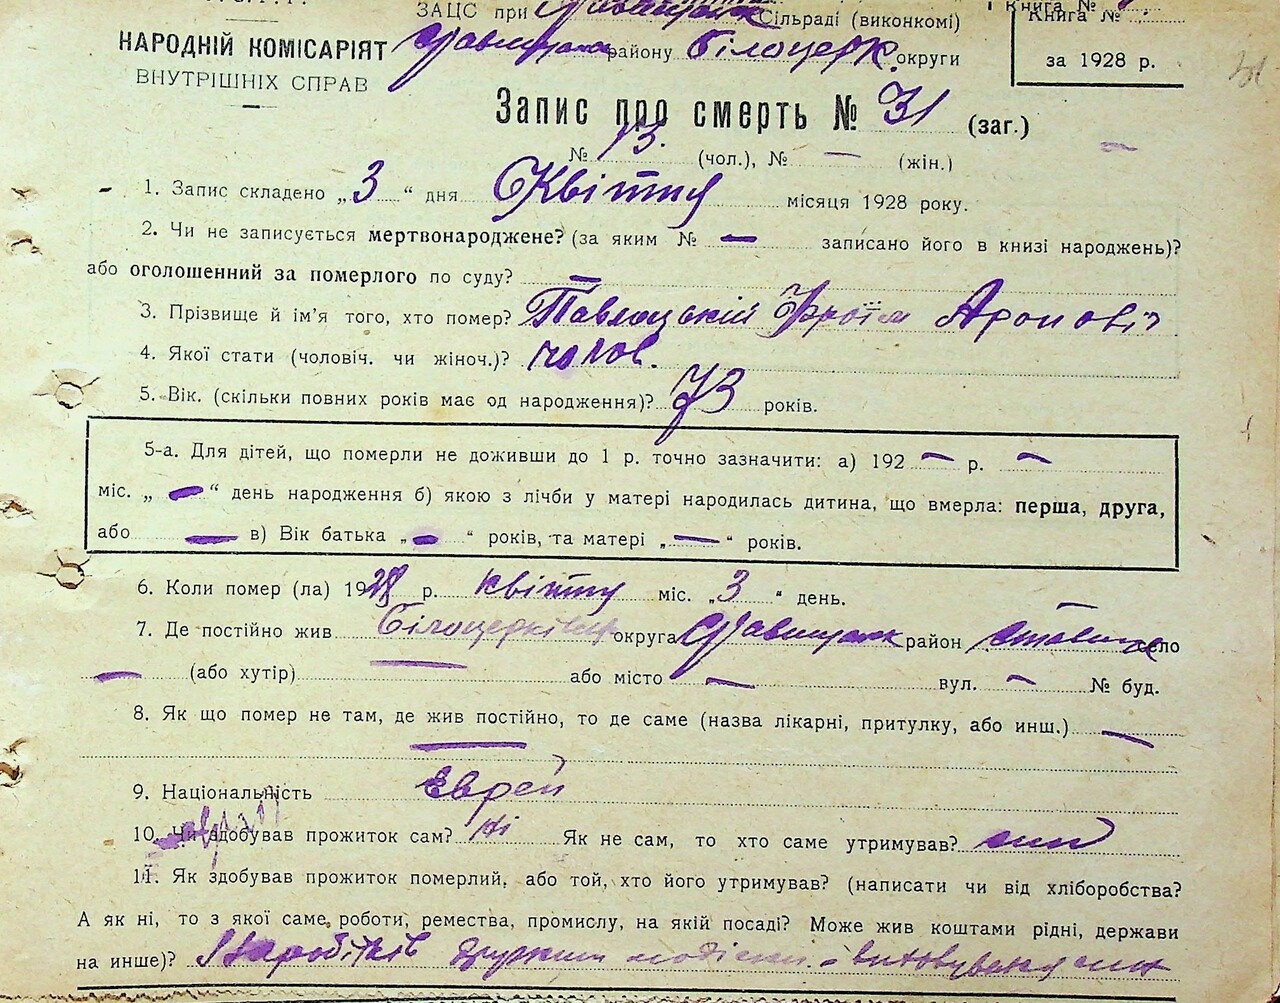 ЗАЦС при Ставищанск Сільраді (виконкомі)
Книга №
НАРОДНІЙ КОМІСАРІЯТ Ставищанск району Білоцерк. округи
ВНУТРІШНІХ СПРАВ
за 1928 р.
31
Запис про смерть № 31 (заг.)
№ 13. (чол.), № — (жін.)
1. Запис складено „3“ дня Квітня місяця 1928 року.
2. Чи не записується мертвонароджене? (за яким № — записано його в книзі народжень)?
або оголошенний за померлого по суду? —
3. Прізвище й ім'я того, хто помер? Павлоцкій Фроїм Аронові
4. Якої стати (чоловіч. чи жіноч.)? чолов.
5. Вік. (скільки повних років має од народження)? 73 років.
5-а. Для дітей, що померли не доживши до 1 р. точно зазначити: а) 192 — р. —
міс. „ — “ день народження б) якою з лічби у матері народилась дитина, що вмерла: перша, друга,
або — в) Вік батька „ — “ років, та матері „ — “ років.
6. Коли помер (ла) 1928 р. квітня міс. „3“ день.
7. Де постійно жив Білоцерківск округа Ставищанск район Ставище село
— (або хутір) — або місто — вул. — № буд.
8. Як що помер не там, де жив постійно, то де саме (назва лікарні, притулку, або инш.) —
9. Національність Єврей
10. Чи здобував прожиток сам? ні Як не сам, то хто саме утримував? син
11. Як здобував прожиток померлий, або той, хто його утримував? (написати чи від хліборобства?
А як ні, то з якої саме роботи, ремества, промислу, на якій посаді? Може жив коштами рідні, держави
на инше)?